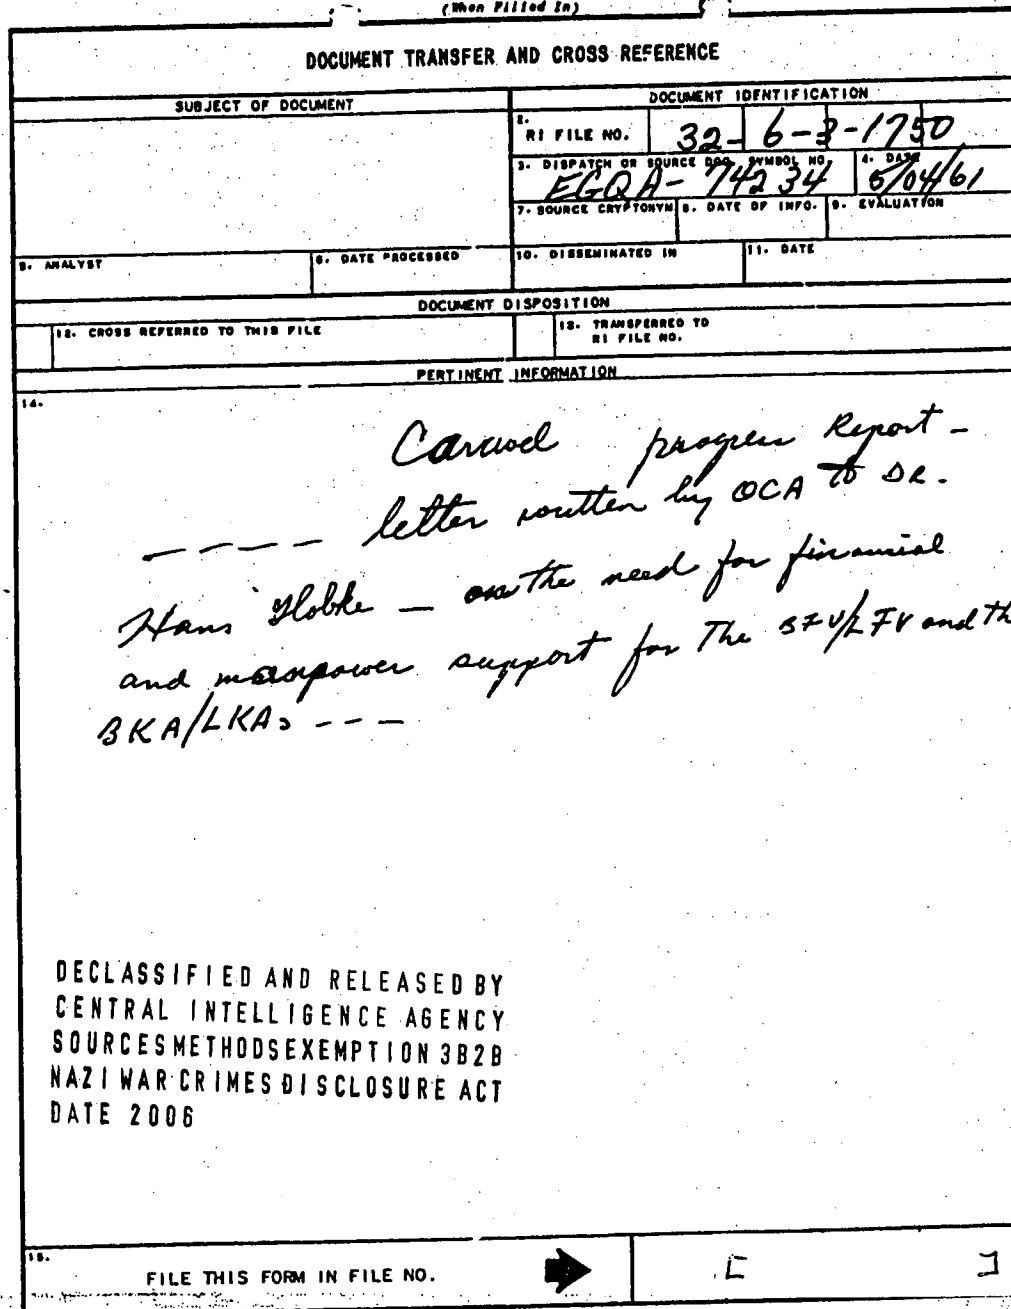 (When Filled In)
DOCUMENT TRANSFER AND CROSS REFERENCE
SUBJECT OF DOCUMENT
DOCUMENT IDENTIFICATION
2. RI FILE NO. 32-6-3-1750
3. DISPATCH OR SOURCE DOC. SYMBOL NO. 4. DATE
EGQA-74234 5/04/61
7. SOURCE CRYPTONYM 8. DATE OF INFO. 9. EVALUATION
5. ANALYST 6. DATE PROCESSED 10. DISSEMINATED IN 11. DATE
DOCUMENT DISPOSITION
12. CROSS REFERRED TO THIS FILE 13. TRANSFERRED TO
RI FILE NO.
PERTINENT INFORMATION
14.
progress Report -
---- letter written by OCA to DR.
Hans Globke - on the need for financial
and manpower support for The BFV/LFV and th
BKA/LKAs ---
DECLASSIFIED AND RELEASED BY
CENTRAL INTELLIGENCE AGENCY
SOURCESMETHODSEXEMPTION 3B2B
NAZI WAR CRIMES DISCLOSURE ACT
DATE 2006
15.
FILE THIS FORM IN FILE NO.
[ ]